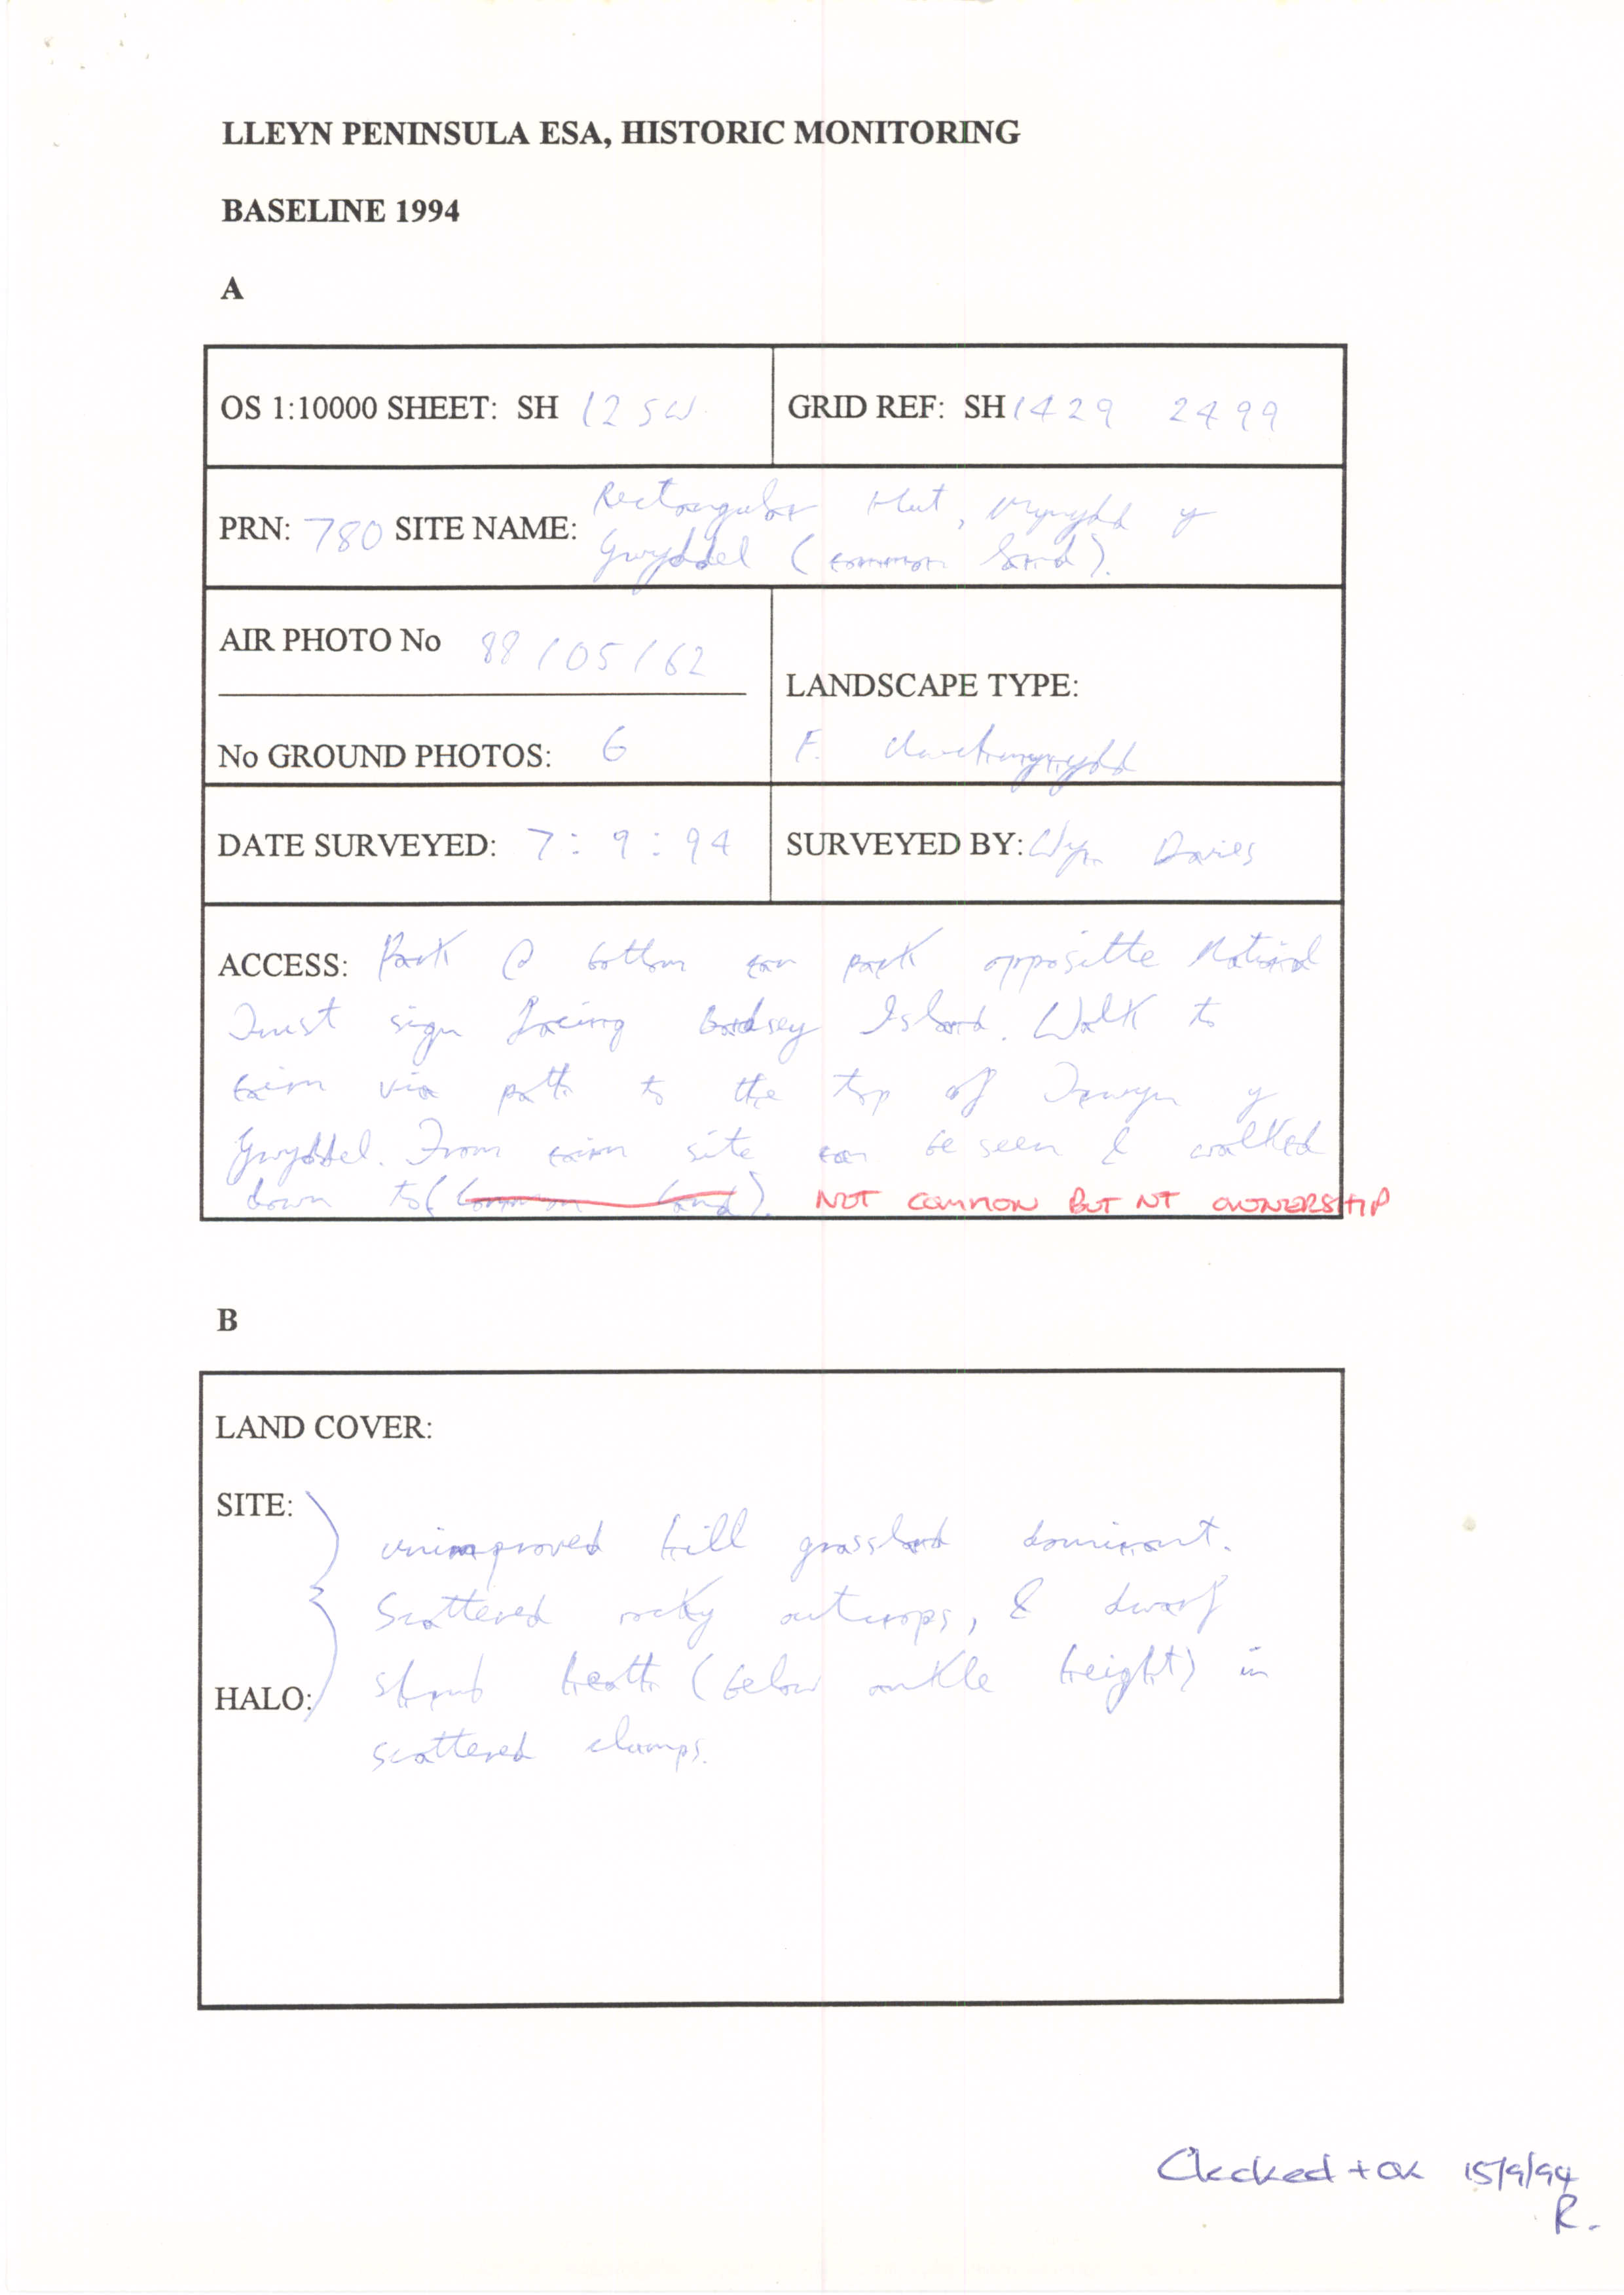 LLEYN PENINSULA ESA, HISTORIC MONITORING
BASELINE 1994
A
OS 1:10000 SHEET: SH 12 SW.
GRID REF: SH 1429 2499
PRN: 780 SITE NAME: Rectangular Hut, Mynydd y
Gwyddel (common land).
AIR PHOTO No 88/05/62
LANDSCAPE TYPE:
No GROUND PHOTOS: 6
F.
DATE SURVEYED: 7:9:94
SURVEYED BY: Wyn Davies
ACCESS: Park @ bottom car park opposite National
Trust sign facing Bardsey Island. Walk to
cairn via path to the top of y
Gwyddel. From cairn site can be seen & walked
down to (common land). NOT COMMON BUT NT OWNERSHIP
B
LAND COVER:
SITE:
unimproved hill grassland dominant.
Scattered rocky outcrops, & dwarf
HALO: shrub heath (below ankle height) in
scattered clumps.
Checked + OK 15/9/94
R.